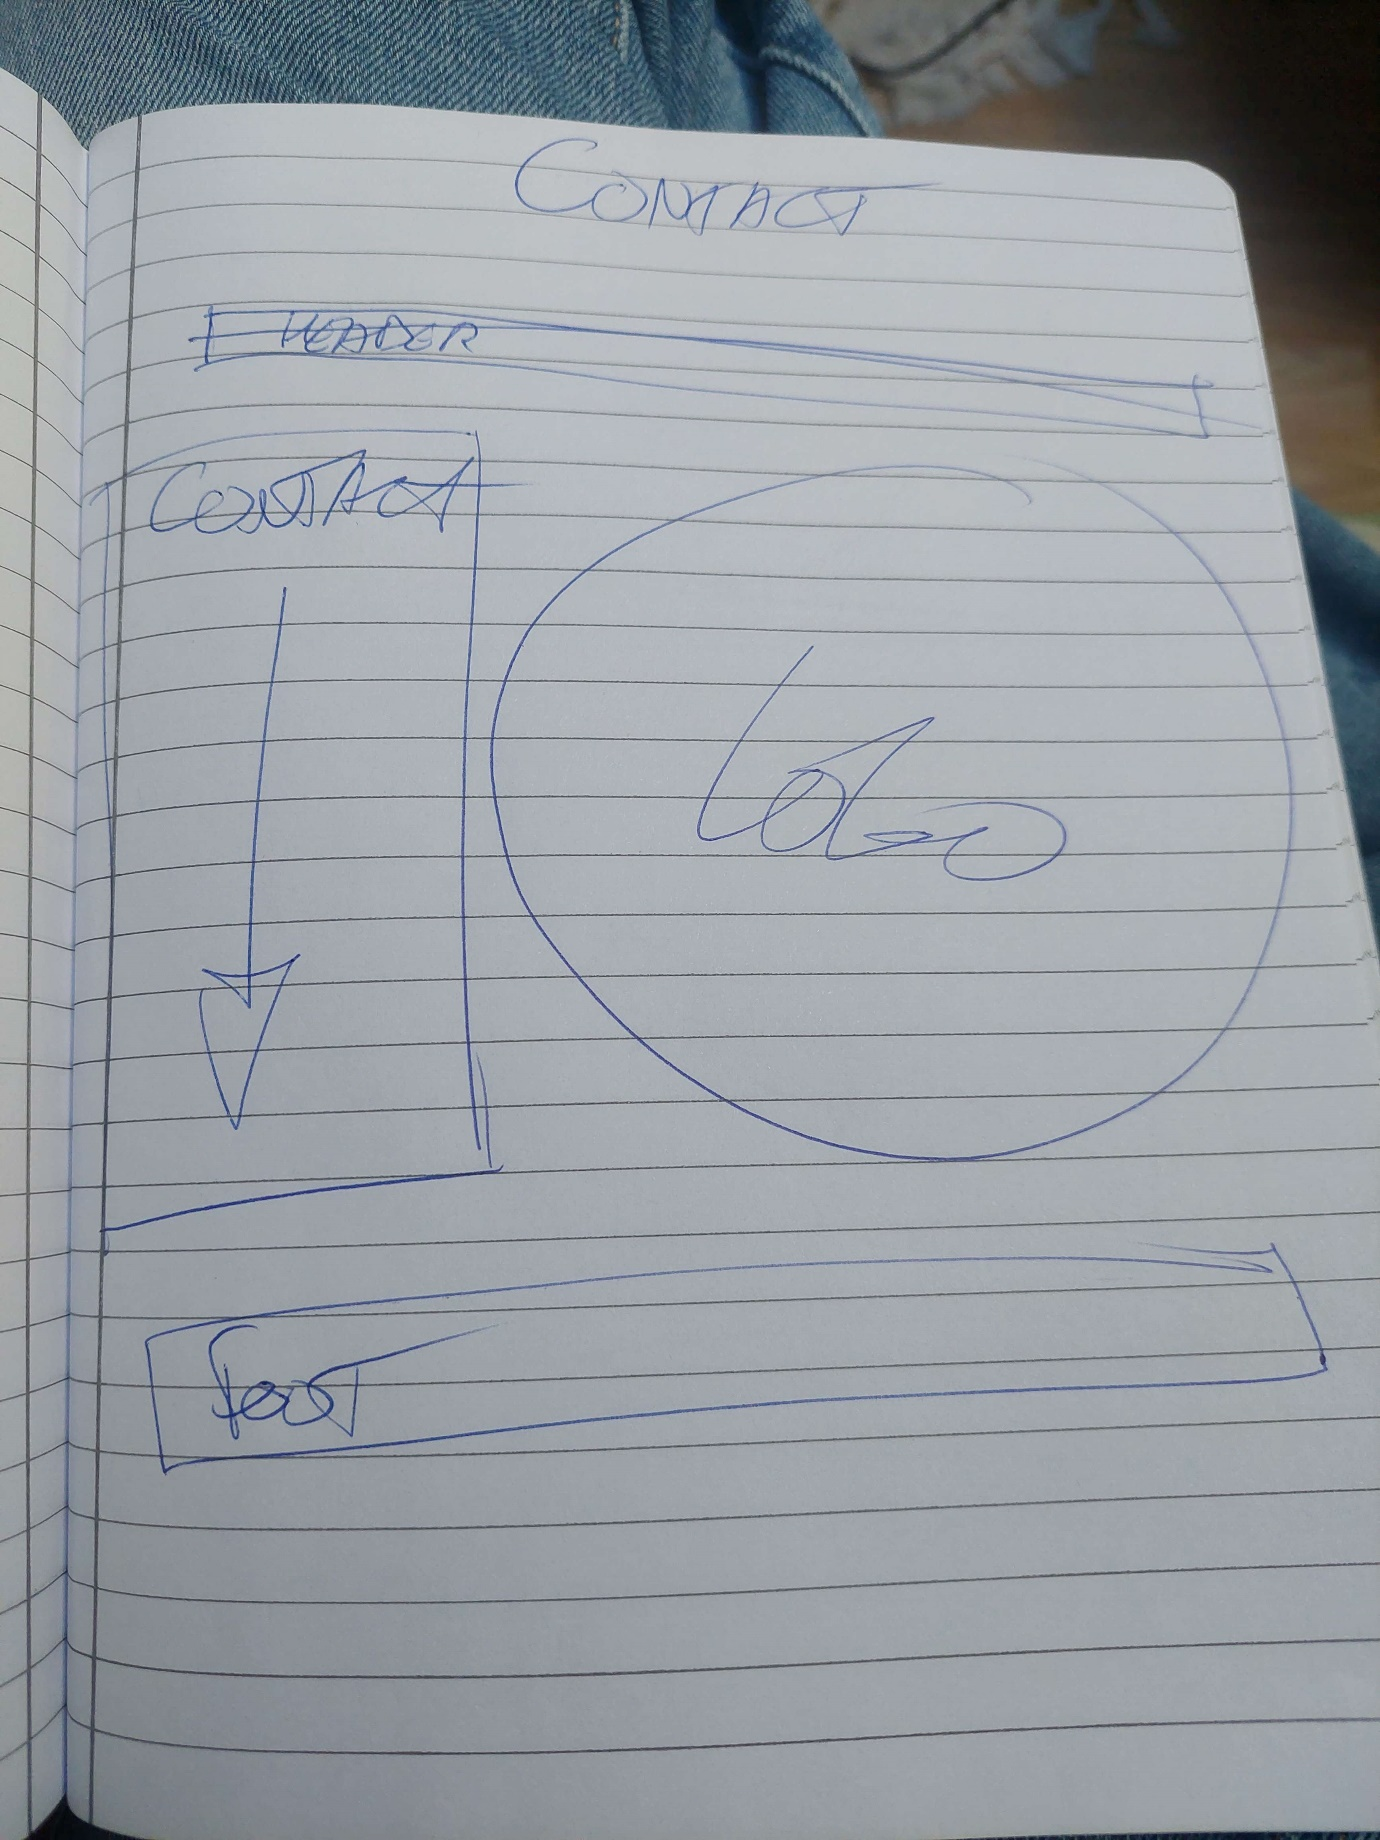 CONTACT
HEADER
CONTACT
LOGO
FOOT